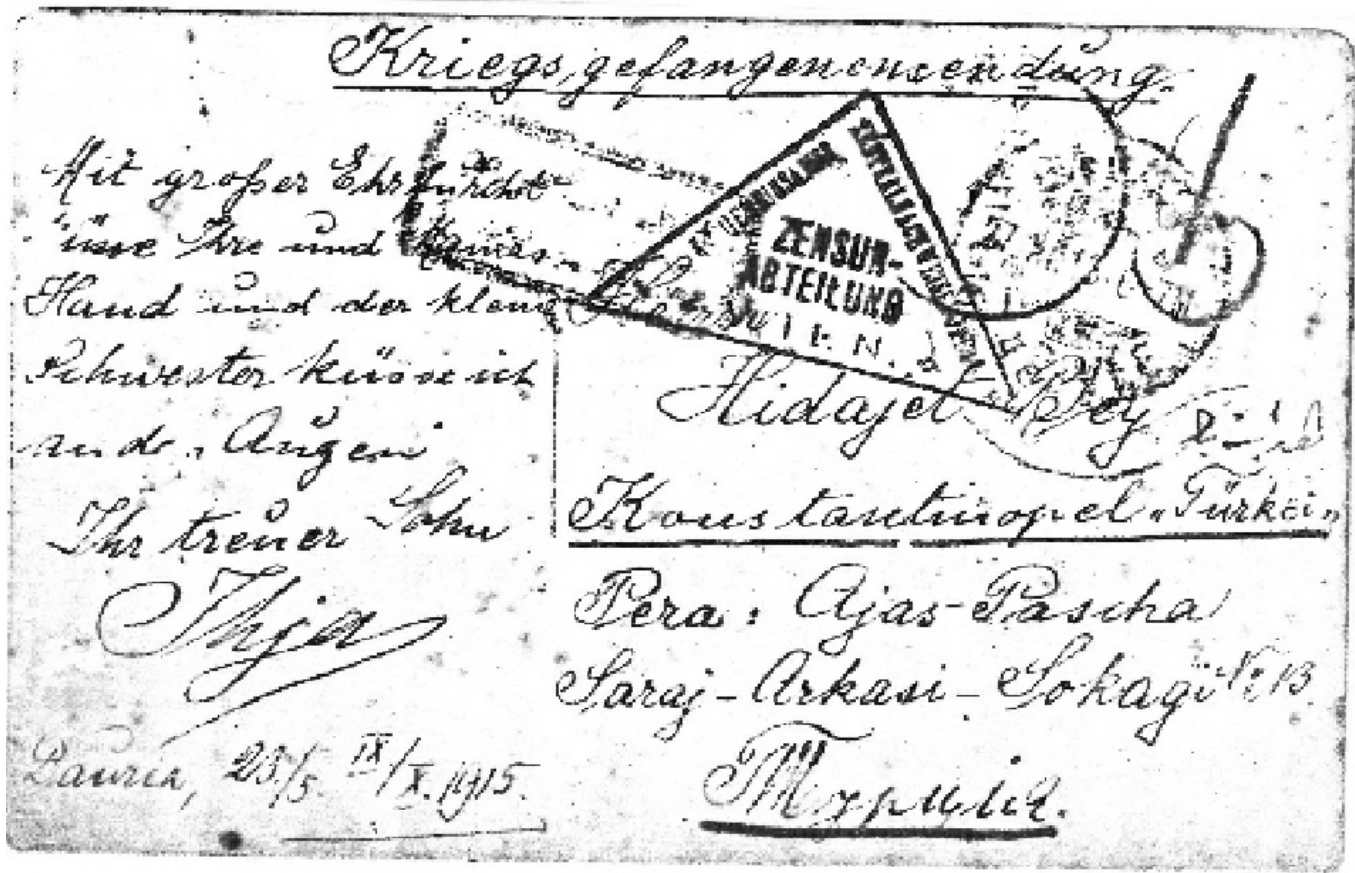 Kriegsgefangenensendung.
Mit großer Ehrfurcht
küsse Ihre und
Hand und der kleinen
Schwester küsse ich
an de Augen
Ihr treuer Sohn
Dauria, 23/5. IX/X. 1915.
ZENSUR-
ABTEILUNG
WIEN
Hidajet Bey
Konstantinopel „Türkei"
Pera: Ajas-Pascha
Saraj-Arkasi-Sokagi № 13.
Турція.